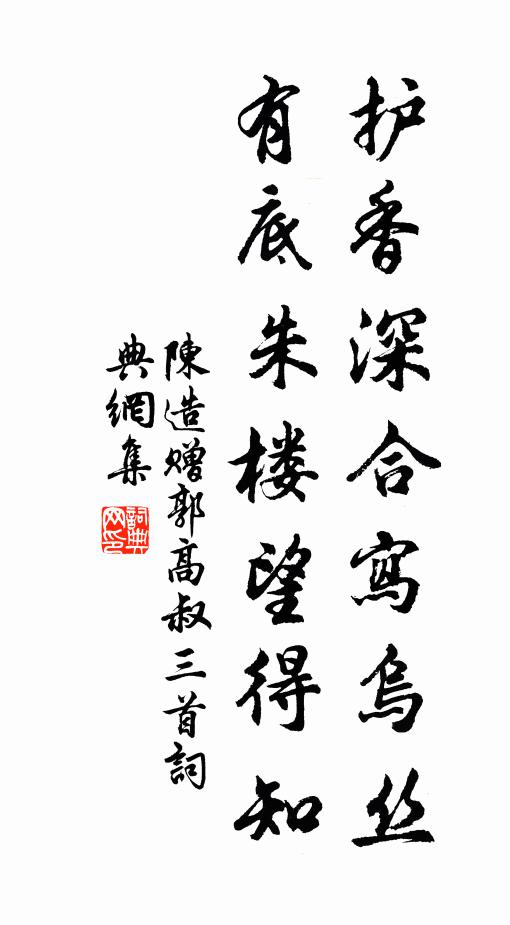 护香深合寫烏丝
有底朱楼望得知
陳造赠郭高叔三首詞
典網集
詞典网印